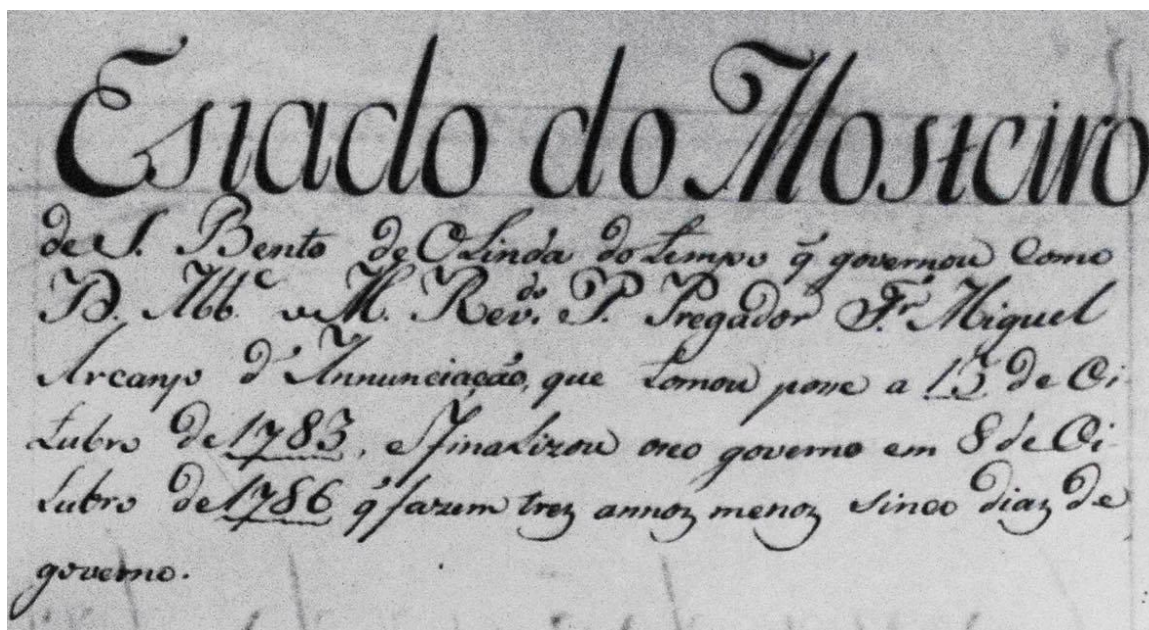 Estado do Mosteiro
de S. Bento de Olinda do tempo q̃ governou como
D. Abb.e o M. Rev.do P. Pregador Fr. Miguel
Arcanjo d'Annunciação, que tomou posse a 13 de Oi-
tubro de 1783, e finalizou o seo governo em 8 de Oi-
tubro de 1786 q̃ fazem trez annoz menoz sinco diaz de
governo.